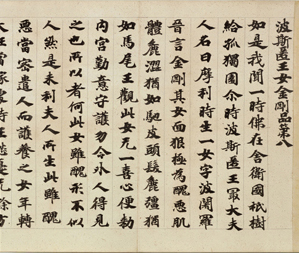 波斯匿王女金剛品第八
如是我聞一時佛在舍衛國祇樹
給孤獨園尒時波斯匿王冣大夫
人名曰摩利時生一女字波闍羅
晉言金剛其女面貇極為醜惡肌
體麁澀猶如駝皮頭髮麁猶
如馬尾王觀此女无一喜心便勑
內宮勤意守護勿令外人得見
之也所以者何此女雖醜形不似
人然是末利夫人所生此雖醜
惡當密遣人而護養之女年轉
大王當嫁處時王愁憂